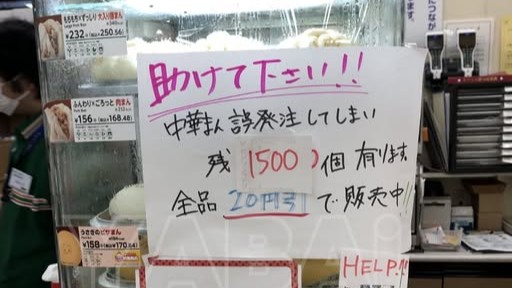 もちもち×ずっしり 大入り豚まん
¥232 (税込¥250.56)
ふんわり×ごろっと 肉まん
¥156 (税込¥168.48)
うさぎのピザまん
¥158 (税込¥170.64)
助けて下さい!!
中華まん誤発注してしまい
残 1500 個 有ります。
全品 20円引 で販売中!!
HELP!!